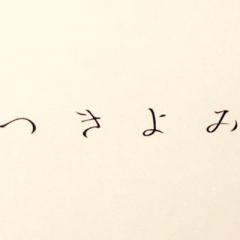 つきよみ